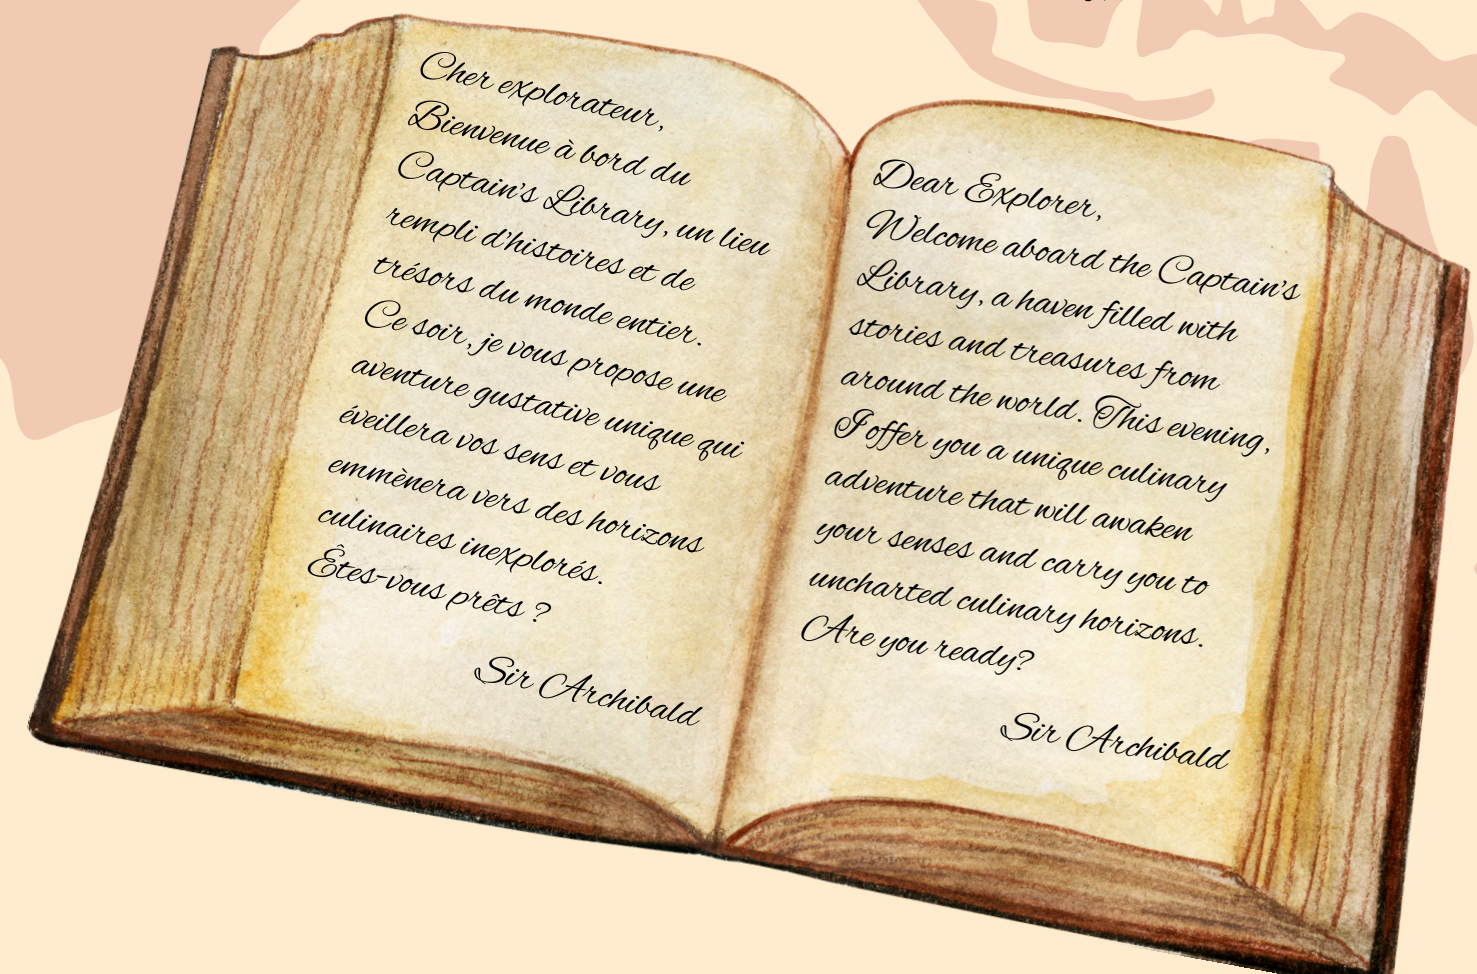 Cher explorateur,
Bienvenue à bord du
Captain's Library, un lieu
rempli d'histoires et de
trésors du monde entier.
Ce soir, je vous propose une
aventure gustative unique qui
éveillera vos sens et vous
emmènera vers des horizons
culinaires inexplorés.
Êtes-vous prêts ?
Sir Archibald
Dear Explorer,
Welcome aboard the Captain's
Library, a haven filled with
stories and treasures from
around the world. This evening,
I offer you a unique culinary
adventure that will awaken
your senses and carry you to
uncharted culinary horizons.
Are you ready?
Sir Archibald